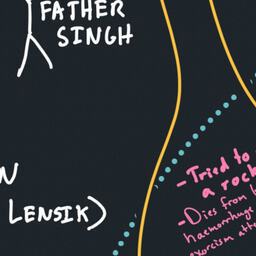 FATHER
SINGH
N
LENSIK)
-Tried to
a rock
-Dies from
haemorrhage
exorcism